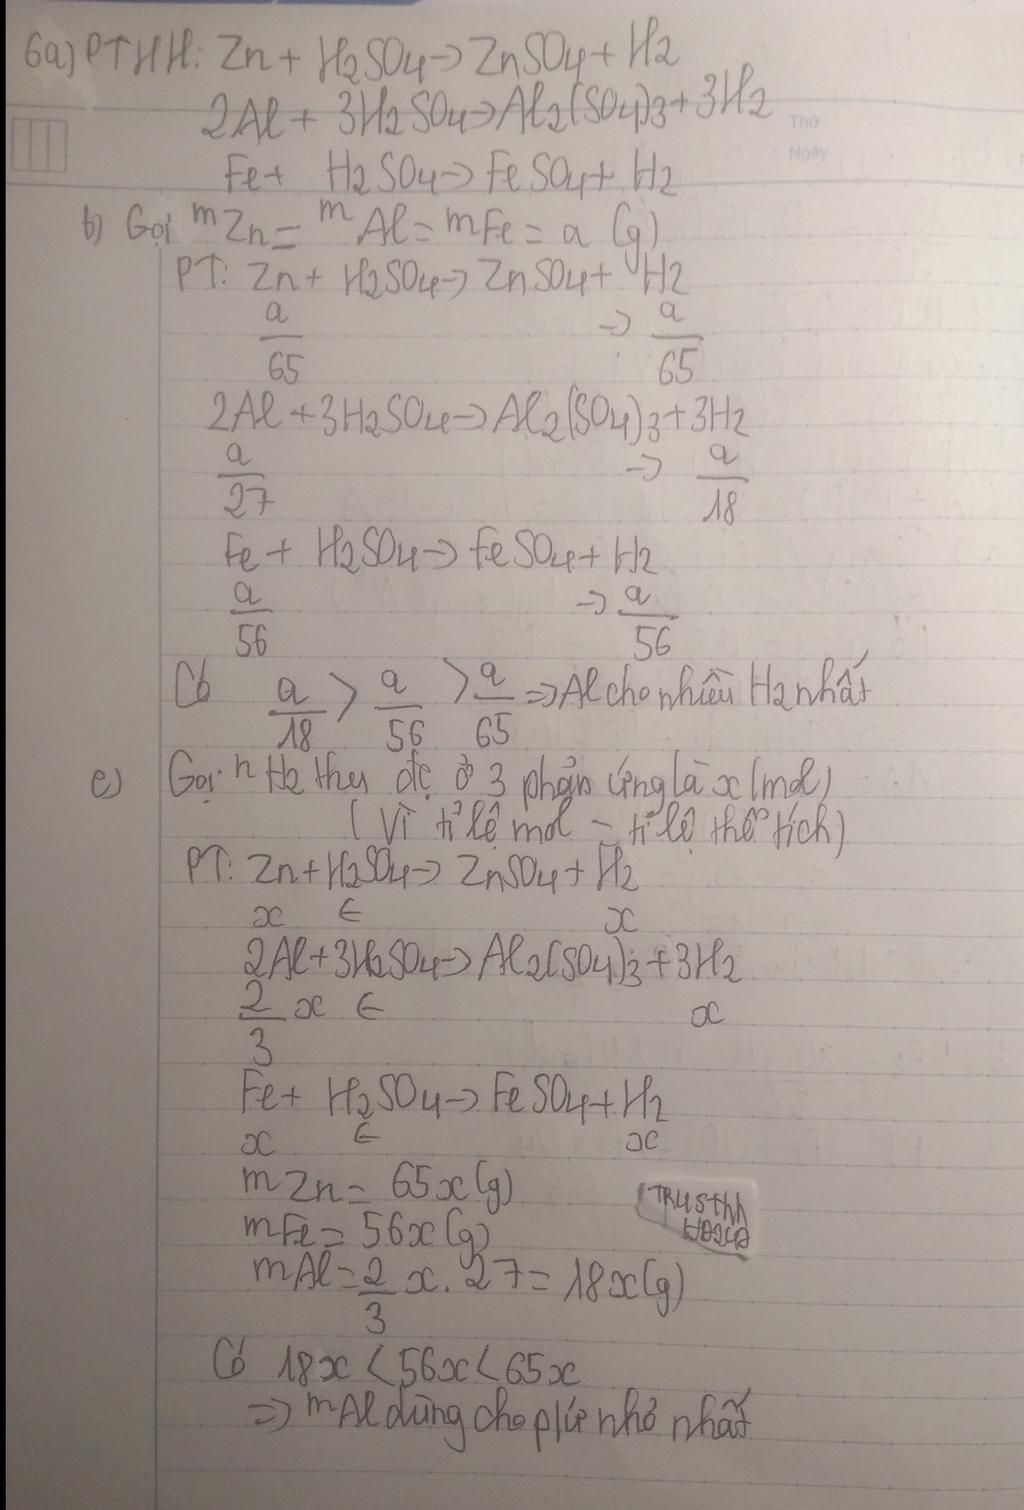 6a) PTHH: Zn + H2SO4 → ZnSO4 + H2
2Al + 3H2SO4 → Al2(SO4)3 + 3H2
Thứ
Ngày
Fe + H2SO4 → FeSO4 + H2
b) Gọi mZn = mAl = mFe = a (g)
PT: Zn + H2SO4 → ZnSO4 + H2
a/65 → a/65
2Al + 3H2SO4 → Al2(SO4)3 + 3H2
a/27 → a/18
Fe + H2SO4 → FeSO4 + H2
a/56 → a/56
Có a/18 > a/56 > a/65 => Al cho nhiều H2 nhất
c) Gọi nH2 thu đc ở 3 phản ứng là x (mol)
(Vì tỉ lệ mol = tỉ lệ thể tích)
PT: Zn + H2SO4 → ZnSO4 + H2
x ← x
2Al + 3H2SO4 → Al2(SO4)3 + 3H2
2/3 x ← x
Fe + H2SO4 → FeSO4 + H2
x ← x
mZn = 65x (g)
TRUSthh
mFe = 56x (g)
mAl = 2/3 x . 27 = 18x (g)
Có 18x < 56x < 65x
=> mAl dùng cho p/ứ nhỏ nhất